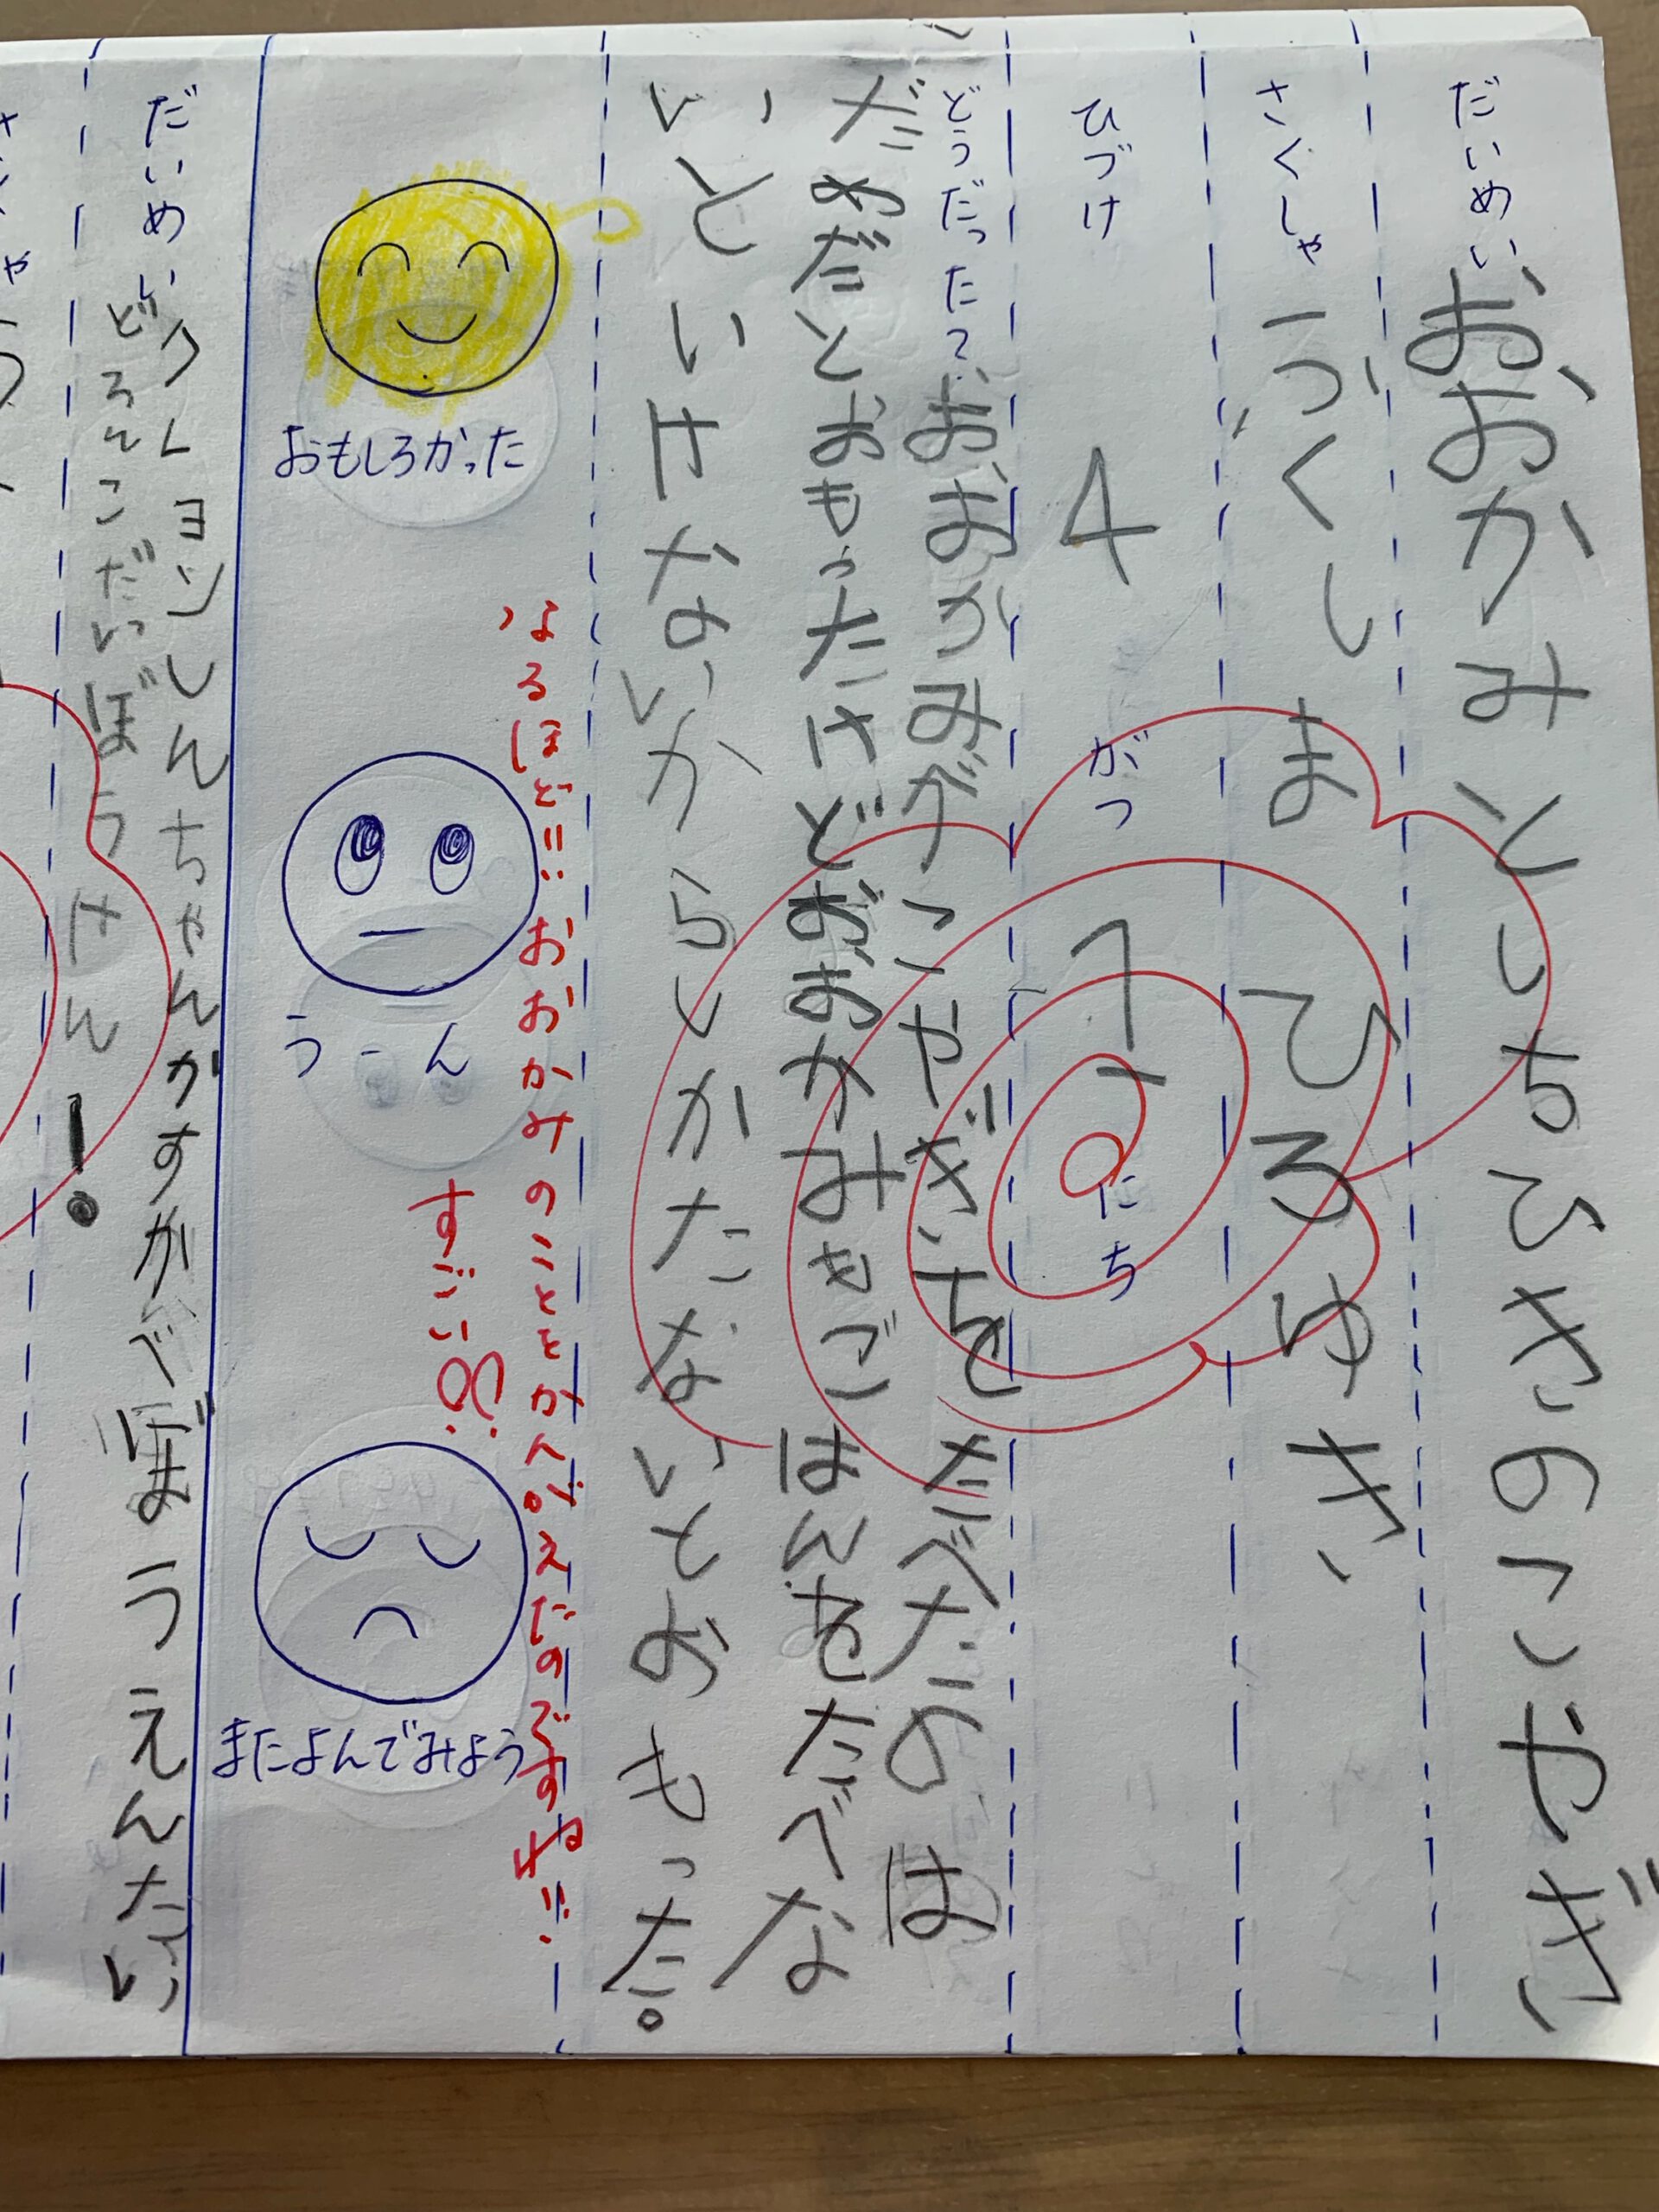 だいめい おおかみとしちひきのこやぎ
さくしゃ づくしまひろゆき
ひづけ 4がつ1にち
どうだった? おおかみがこやぎちをたべたのは
だめだとおもったけどおおかみもごはんをたべな
いといけないからしかたないとおもった。
なるほど!! おおかみのこともかんがえたのですね!!
すごい!!
おもしろかった
うーん
またよんでみよう
だいめい クレヨンしんちゃんかすかべぼうえんたい
どろんこだいぼうけん!